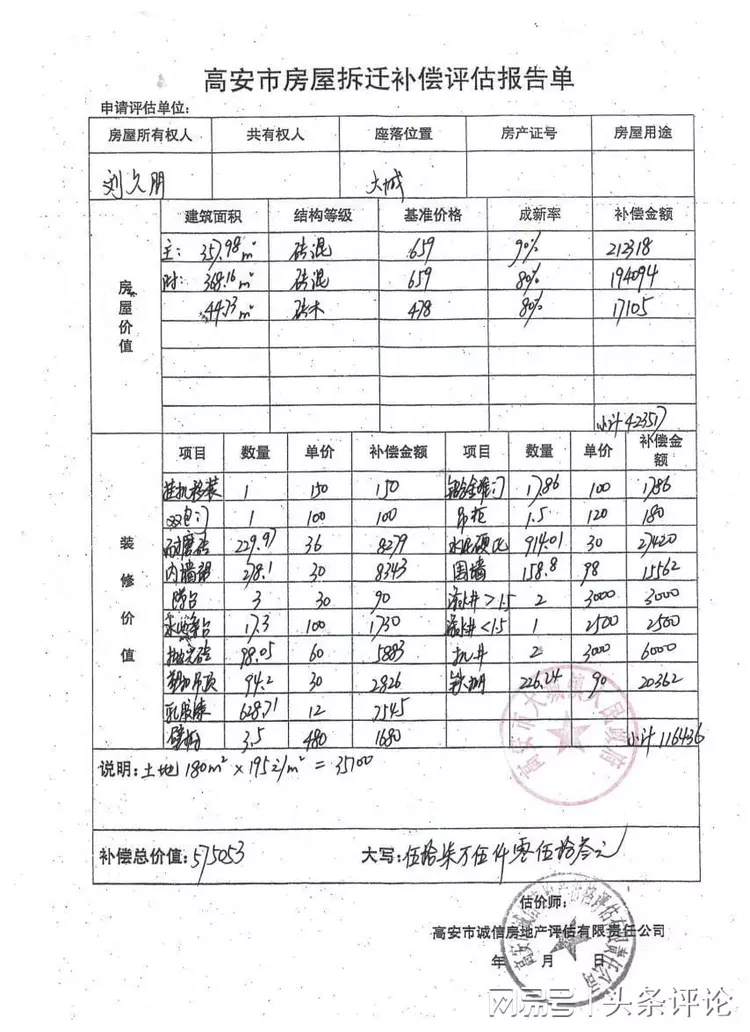 高安市房屋拆迁补偿评估报告单
申请评估单位：
房屋所有权人 共有权人 座落位置 房产证号 房屋用途
刘久明 大城
房屋价值 建筑面积 结构等级 基准价格 成新率 补偿金额
主：357.98m² 砖混 659 90% 212318
附：368.16m² 砖混 659 80% 194094
44.73m² 砖木 478 80% 17105
小计423517
装修价值 项目 数量 单价 补偿金额 项目 数量 单价 补偿金额
挂机移装 1 150 150 17.86 100 1786
1 100 100 吊柜 1.5 120 180
耐磨砖 229.97 36 8279 914.01 30 27420
内墙 278.1 30 8343 围墙 158.8 98 15562
3 30 90 >1.5 2 3000 3000
17.3 100 1730 <1.5 1 2500 2500
抛光砖 98.05 60 5883 机井 2 3000 6000
塑扣吊顶 94.2 30 2826 226.24 90 20362
乳胶漆 628.71 12 7545
壁柜 3.5 480 1680 小计116436
说明：土地180m²×195元/m²=35100
补偿总价值：575053 大写：伍拾柒万伍仟零伍拾叁元
高安市大城镇人民政府
估价师：
高安市诚信房地产评估有限责任公司
年 月 日
网易号 | 头条评论